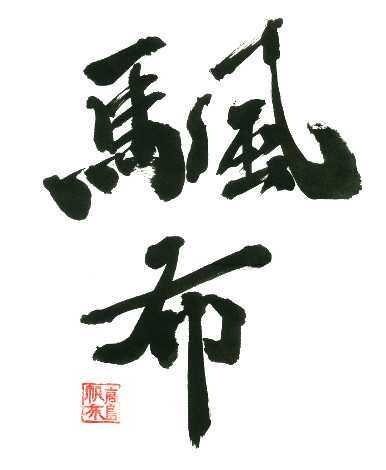 颿布
高島
帆布